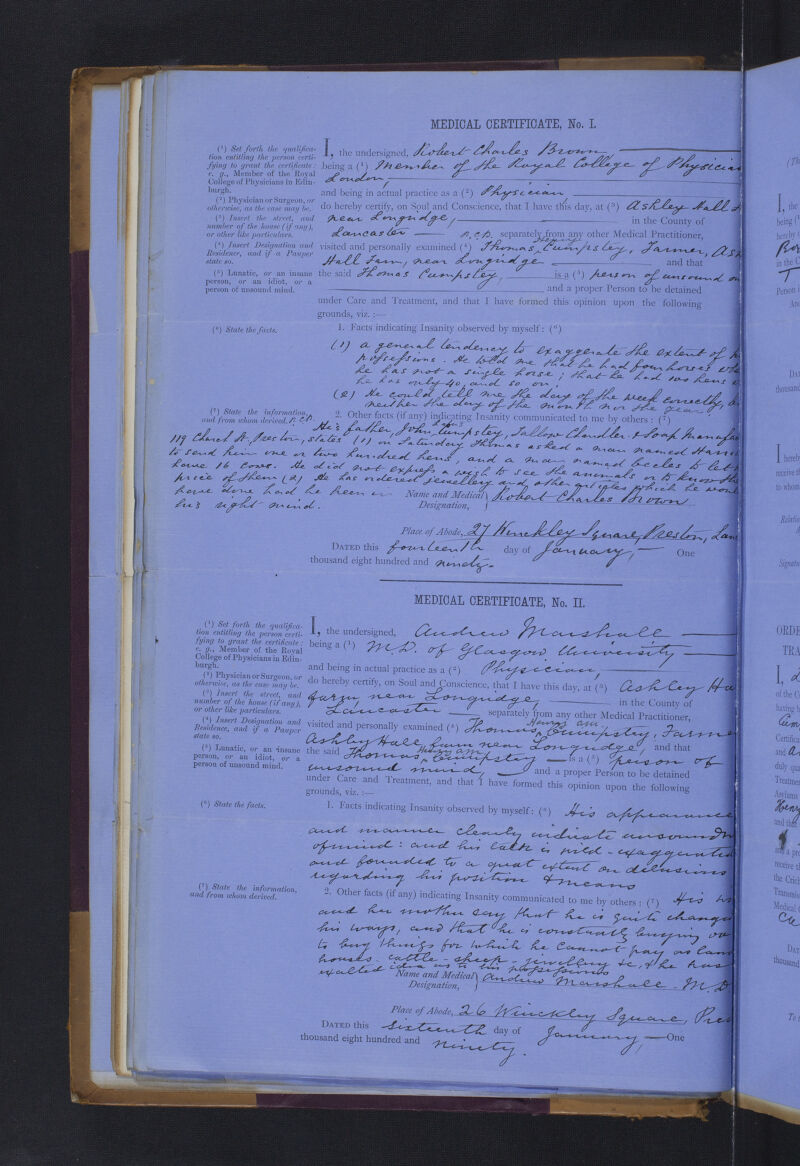 MEDICAL CERTIFICATE, No. I.
(1) Set forth the qualifica-
tion entitling the person certi-
fying to grant the certificate:
e. g., Member of the Royal
College of Physicians in Edin-
burgh.
(2) Physician or Surgeon, or
otherwise, as the case may be.
(3) Insert the street, and
number of the house (if any),
or other like particulars.
(4) Insert Designation and
Residence, and if a Pauper
state so.
(5) Lunatic, or an insane
person, or an idiot, or a
person of unsound mind.
I, the undersigned, Robert Charles Brown
being a (1) Member of the Royal College of Physician
London,
and being in actual practice as a (2) Physician,
do hereby certify, on Soul and Conscience, that I have this day, at (3) Ashley Hall
near Longridge, in the County of
Lancaster R.C.B. separately from any other Medical Practitioner,
visited and personally examined (4) Thomas Henry Cumpsley, Farmer, Ash
Hall Farm, near Longridge and that
the said Thomas Cumpsley, is a (5) person of unsound
and a proper Person to be detained
under Care and Treatment, and that I have formed this opinion upon the following
grounds, viz. :—
(6) State the facts.
1. Facts indicating Insanity observed by myself: (6)
(1) a general tendency to exaggerate the extent of
possessions. He told me that he had four horses
he has not a single horse; that he had 200 hens
he has only 40, and so on,
(2) He could tell me the day of the week correctly,
neither the day of the month nor the year
(7) State the information,
and from whom derived. R.C.B.
2. Other facts (if any) indicating Insanity communicated to me by others: (7)
His father, John Cumpsley, Tallow Chandler & Soap Manufac
119 Church St, Preston, states (1) on Saturday Thomas asked a man named
to send him one or two hundred hens, and a man named Eccles to let
have 16 cows. He did not express a wish to see the animals or to know the
price of them (2) He has ordered jewellery and other articles which he woul
have done had he been in
his right mind.
Name and Medical Designation, Robert Charles Brown
Place of Abode, 27 Winckley Square, Preston, Lan
DATED this fourteenth day of January, One
thousand eight hundred and ninety.
MEDICAL CERTIFICATE, No. II.
(1) Set forth the qualifica-
tion entitling the person certi-
fying to grant the certificate:
e. g., Member of the Royal
College of Physicians in Edin-
burgh.
(2) Physician or Surgeon, or
otherwise, as the case may be.
(3) Insert the street, and
number of the house (if any),
or other like particulars.
(4) Insert Designation and
Residence, and if a Pauper
state so.
(5) Lunatic, or an insane
person, or an idiot, or a
person of unsound mind.
I, the undersigned, Andrew Marshall
being a (1) M.D. of Glasgow University
and being in actual practice as a (2) Physician,
do hereby certify, on Soul and Conscience, that I have this day, at (3) Ashley Ha
farm, near Longridge, in the County of
Lancaster separately from any other Medical Practitioner,
visited and personally examined (4) Thomas Henry A.M. Cumpsley, Farme
Ashley Hall Farm near Longridge, and that
the said Thomas Henry A.M. Cumpsley is a (5) person of
unsound mind, and a proper Person to be detained
under Care and Treatment, and that I have formed this opinion upon the following
grounds, viz. :—
(6) State the facts.
1. Facts indicating Insanity observed by myself: (6) His appearance
and manner clearly indicate unsoundn
of mind: and his talk is wild - exaggerated
and founded to a great extent on delusions
regarding his position & means
(7) State the information,
and from whom derived.
2. Other facts (if any) indicating Insanity communicated to me by others: (7) His
and her mother say that he is quite change
his ways, and that he is constantly buying or
to buy things for which he cannot pay as land
houses - cattle - sheep - jewellery &c, & he has
exalted idea as to his possessions
Name and Medical Designation, Andrew Marshall - M.D
Place of Abode, 26 Winckley Square, Pre
DATED this Sixteenth day of January, One
thousand eight hundred and ninety.